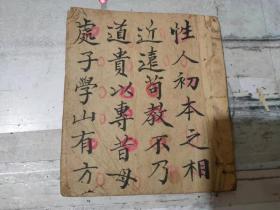 性人初本之相
近遠苟教不乃
道貴以專昔母
處子學山有方